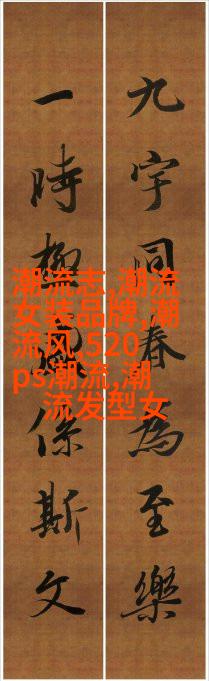 九宇同春為至樂
一時係斯文
潮流志,潮流
女装品牌,潮
流风,520
ps潮流,潮
流发型女